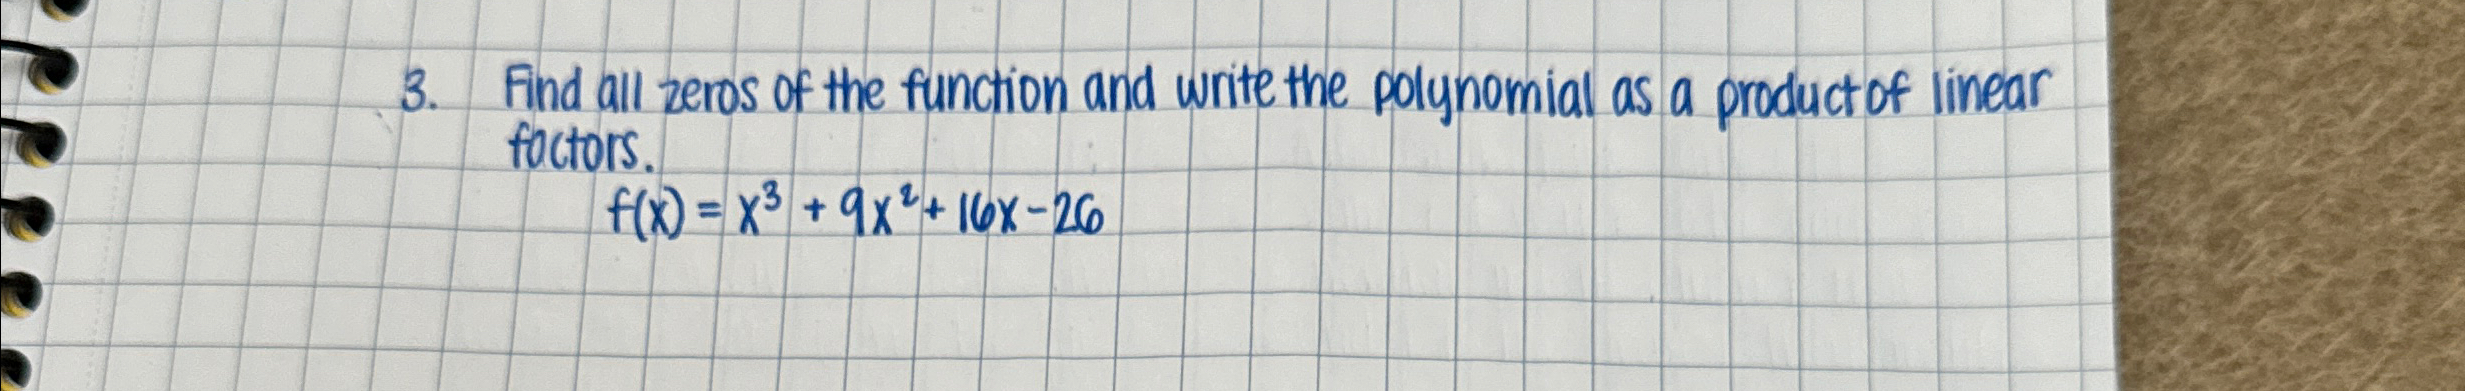 3. Find all zeros of the function and write the polynomial as a product of linear
factors.
f(x) = x³ + 9x² + 16x - 26